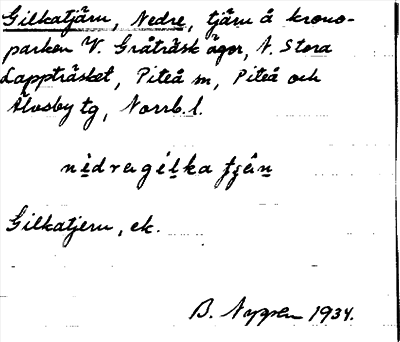 Gilkatjärn, Nedre, tjärn å krono-
parken V. Gråträsk ägor, N. Stora
Lappträsket, Piteå sn, Piteå och
Älvsby tg, Norrb. l.
nidra gilka
Gilkatjern, ek.
B. Nygren 1934.